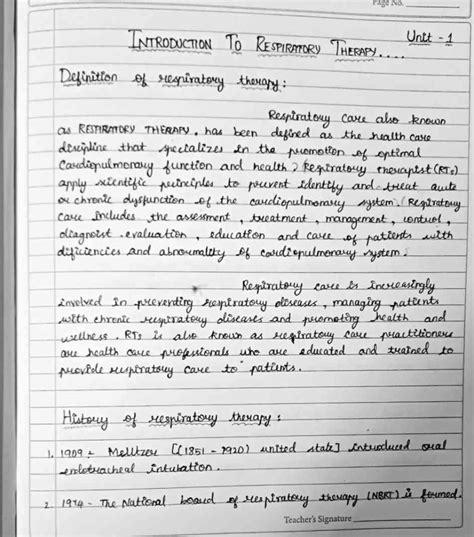 Page No.
Unit - 1
INTRODUCTION TO RESPIRATORY THERAPY....
Definition of respiratory therapy :
Respiratory care also known
as RESPIRATORY THERAPY, has been defined as the health care
discipline that specializes in the promotion of optimal
Cardiopulmonary function and health) Respiratory therapist (RTs)
apply scientific principles to prevent identify and treat aute
or chronic dysfunction of the cardiopulmonary system. (Respiratory
care includes the assessment, treatment, management, control,
diagnoist evaluation, education and care of patients with
dificiencies and abnormality of cardiopulmonary system.
Respiratory care is increasingly
involved in preventing respiratory diseases, managing patients
with chronic respiratory diseases and promoting health and
wellness. RTs is also known as respiratory care practitioners
are health care professionals who are educated and trained to
provide respiratory care to patients.
History of respiratory therapy :
1. 1909 - Melltzer [(1851 - 1920) united state] introduced oral
endotracheal intubation.
2. 1974 - The National board of respiratory therapy (NBRT) is formed.
Teacher's Signature